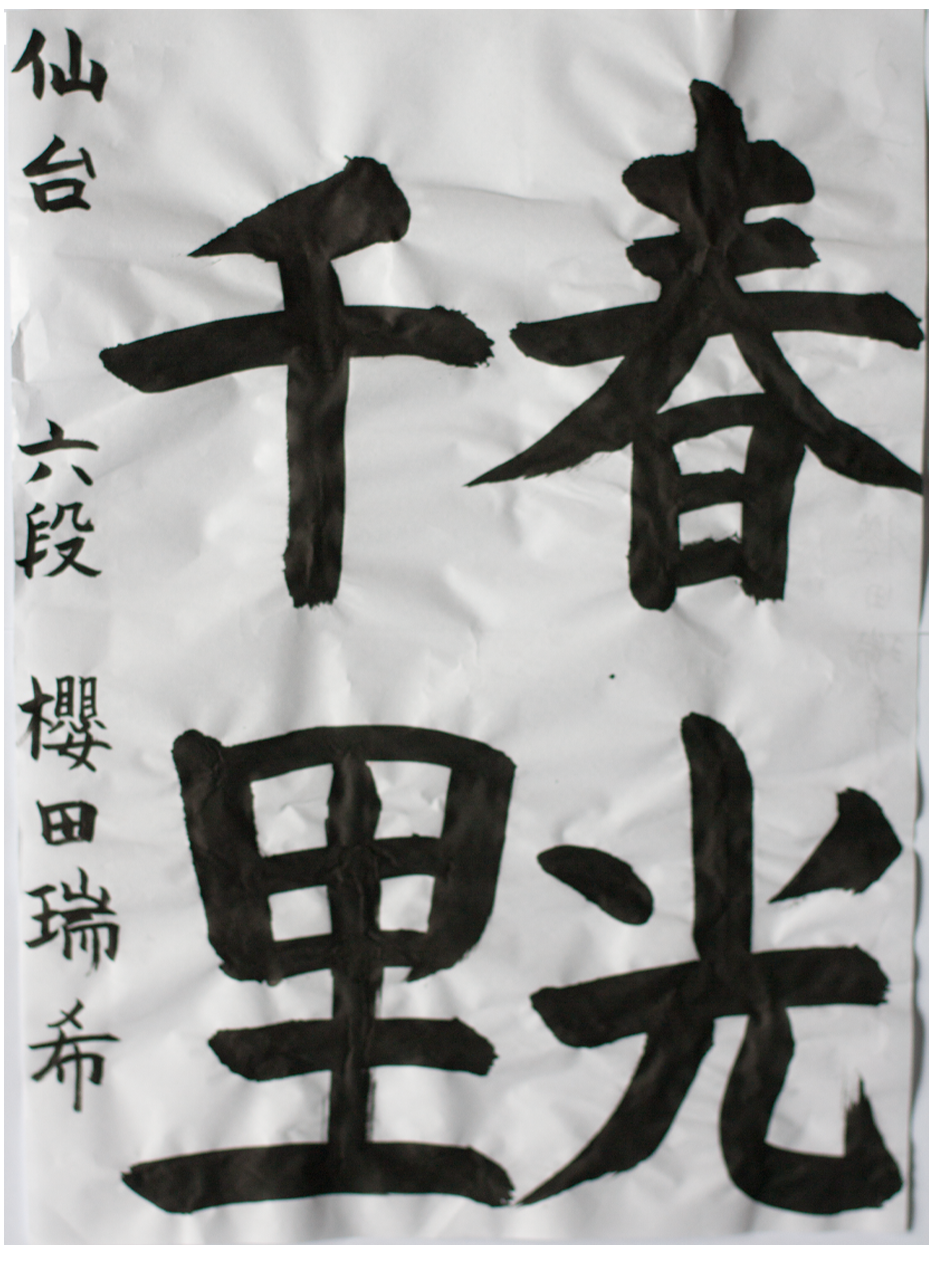 春光
千里
仙台 六段 櫻田瑞希